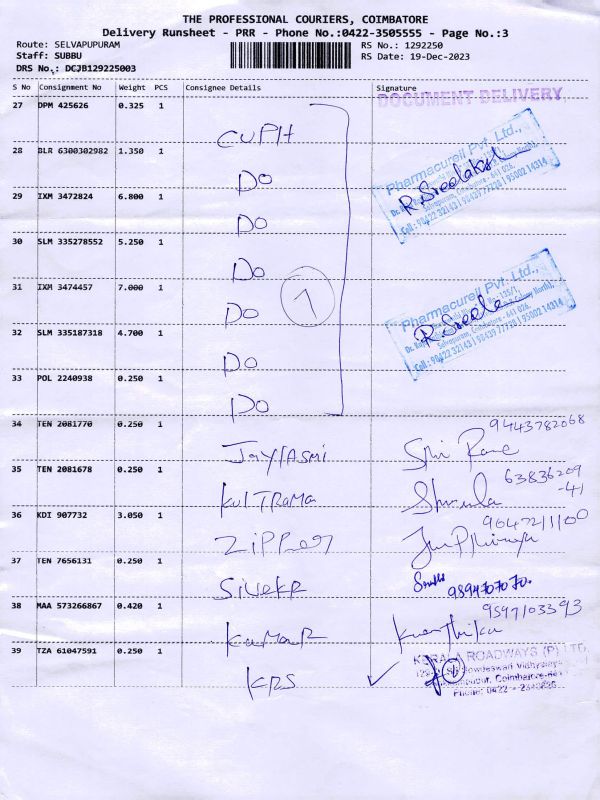 THE PROFESSIONAL COURIERS, COIMBATORE
Delivery Runsheet - PRR - Phone No.:0422-3505555 - Page No.:3
Route: SELVAPUPURAM
RS No.: 1292250
Staff: SUBBU
RS Date: 19-Dec-2023
DRS No.: DCJB129225003
S No Consignment No Weight PCS Consignee Details Signature
DOCUMENT DELIVERY
27 DPM 425626 0.325 1
CUPH
28 BLR 6300302982 1.350 1
DO
Pharmacureil Pvt. Ltd.,
R. Sreelakshmi
Selvapuram, Coimbatore - 641 026.
Cell : 98422 32143 | 98439 77728 | 95002 14314
29 IXM 3472824 6.800 1
DO
30 SLM 335278552 5.250 1
DO
31 IXM 3474457 7.000 1
DO
1
Pharmacureil Pvt. Ltd.,
R. Sreele
Selvapuram, Coimbatore - 641 026.
Cell : 98422 32143 | 98439 77728 | 95002 14314
32 SLM 335187318 4.700 1
DO
33 POL 2240938 0.250 1
DO
34 TEN 2081770 0.250 1
9443782068
JAYLASMI
35 TEN 2081678 0.250 1
63836209
-41
KULTRAMA
36 KDI 907732 3.050 1
9047211100
ZIPPER
37 TEN 7656131 0.250 1
SIVEKR
9894707070.
38 MAA 573266867 0.420 1
9597103393
KUMAR
Karthika
39 TZA 61047591 0.250 1
KRS
KERALA ROADWAYS (P) LTD
Coimbatore
Phone: 0422 - 2340826